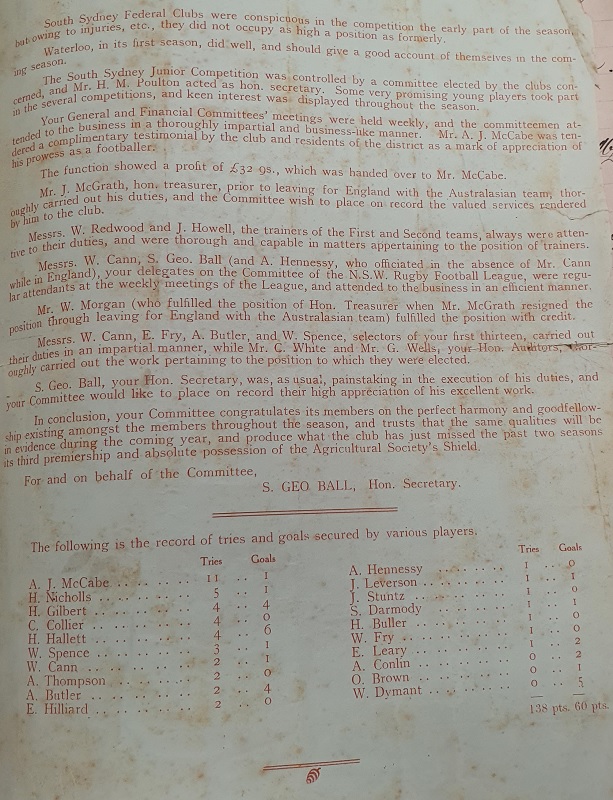 South Sydney Federal Clubs were conspicuous in the competition the early part of the season,
but owing to injuries, etc., they did not occupy as high a position as formerly.
Waterloo, in its first season, did well, and should give a good account of themselves in the com-
ing season.
The South Sydney Junior Competition was controlled by a committee elected by the clubs con-
cerned, and Mr. H. M. Poulton acted as hon. secretary. Some very promising young players took part
in the several competitions, and keen interest was displayed throughout the season.
Your General and Financial Committees' meetings were held weekly, and the committeemen at-
tended to the business in a thoroughly impartial and business-like manner. Mr. A. J. McCabe was ten-
dered a complimentary testimonial by the club and residents of the district as a mark of appreciation of
his prowess as a footballer.
The function showed a profit of £32 9s., which was handed over to Mr. McCabe.
Mr. J. McGrath, hon. treasurer, prior to leaving for England with the Australasian team, thor-
oughly carried out his duties, and the Committee wish to place on record the valued services rendered
by him to the club.
Messrs. W. Redwood and J. Howell, the trainers of the First and Second teams, always were atten-
tive to their duties, and were thorough and capable in matters appertaining to the position of trainers.
Messrs. W. Cann, S. Geo. Ball (and A. Hennessy, who officiated in the absence of Mr. Cann
while in England), your delegates on the Committee of the N.S.W. Rugby Football League, were regu-
lar attendants at the weekly meetings of the League, and attended to the business in an efficient manner.
Mr. W. Morgan (who fulfilled the position of Hon. Treasurer when Mr. McGrath resigned the
position through leaving for England with the Australasian team) fulfilled the position with credit.
Messrs. W. Cann, E. Fry, A. Butler, and W. Spence, selectors of your first thirteen, carried out
their duties in an impartial manner, while Mr. C. White and Mr. G. Wells, your Hon. Auditors, thor-
oughly carried out the work pertaining to the position to which they were elected.
S. Geo. Ball, your Hon. Secretary, was, as usual, painstaking in the execution of his duties, and
your Committee would like to place on record their high appreciation of his excellent work.
In conclusion, your Committee congratulates its members on the perfect harmony and goodfellow-
ship existing amongst the members throughout the season, and trusts that the same qualities will be
in evidence during the coming year, and produce what the club has just missed the past two seasons
its third premiership and absolute possession of the Agricultural Society's Shield.
For and on behalf of the Committee,
S. GEO BALL, Hon. Secretary.
The following is the record of tries and goals secured by various players.
Tries Goals
A. J. McCabe .......... 11 .. 1
H. Nicholls .......... 5 .. 1
H. Gilbert .......... 4 .. 4
C. Collier .......... 4 .. 0
H. Hallett .......... 4 .. 6
W. Spence .......... 3 .. 1
W. Cann .......... 2 .. 1
A. Thompson .......... 2 .. 0
A. Butler .......... 2 .. 4
E. Hilliard .......... 2 .. 0
Tries Goals
A. Hennessy .......... 1 .. 0
J. Leverson .......... 1 .. 1
J. Stuntz .......... 1 .. 0
S. Darmody .......... 1 .. 1
H. Buller .......... 1 .. 0
W. Fry .......... 1 .. 0
E. Leary .......... 1 .. 2
A. Conlin .......... 0 .. 2
O. Brown .......... 0 .. 1
W. Dymant .......... 0 .. 5
138 pts. 60 pts.